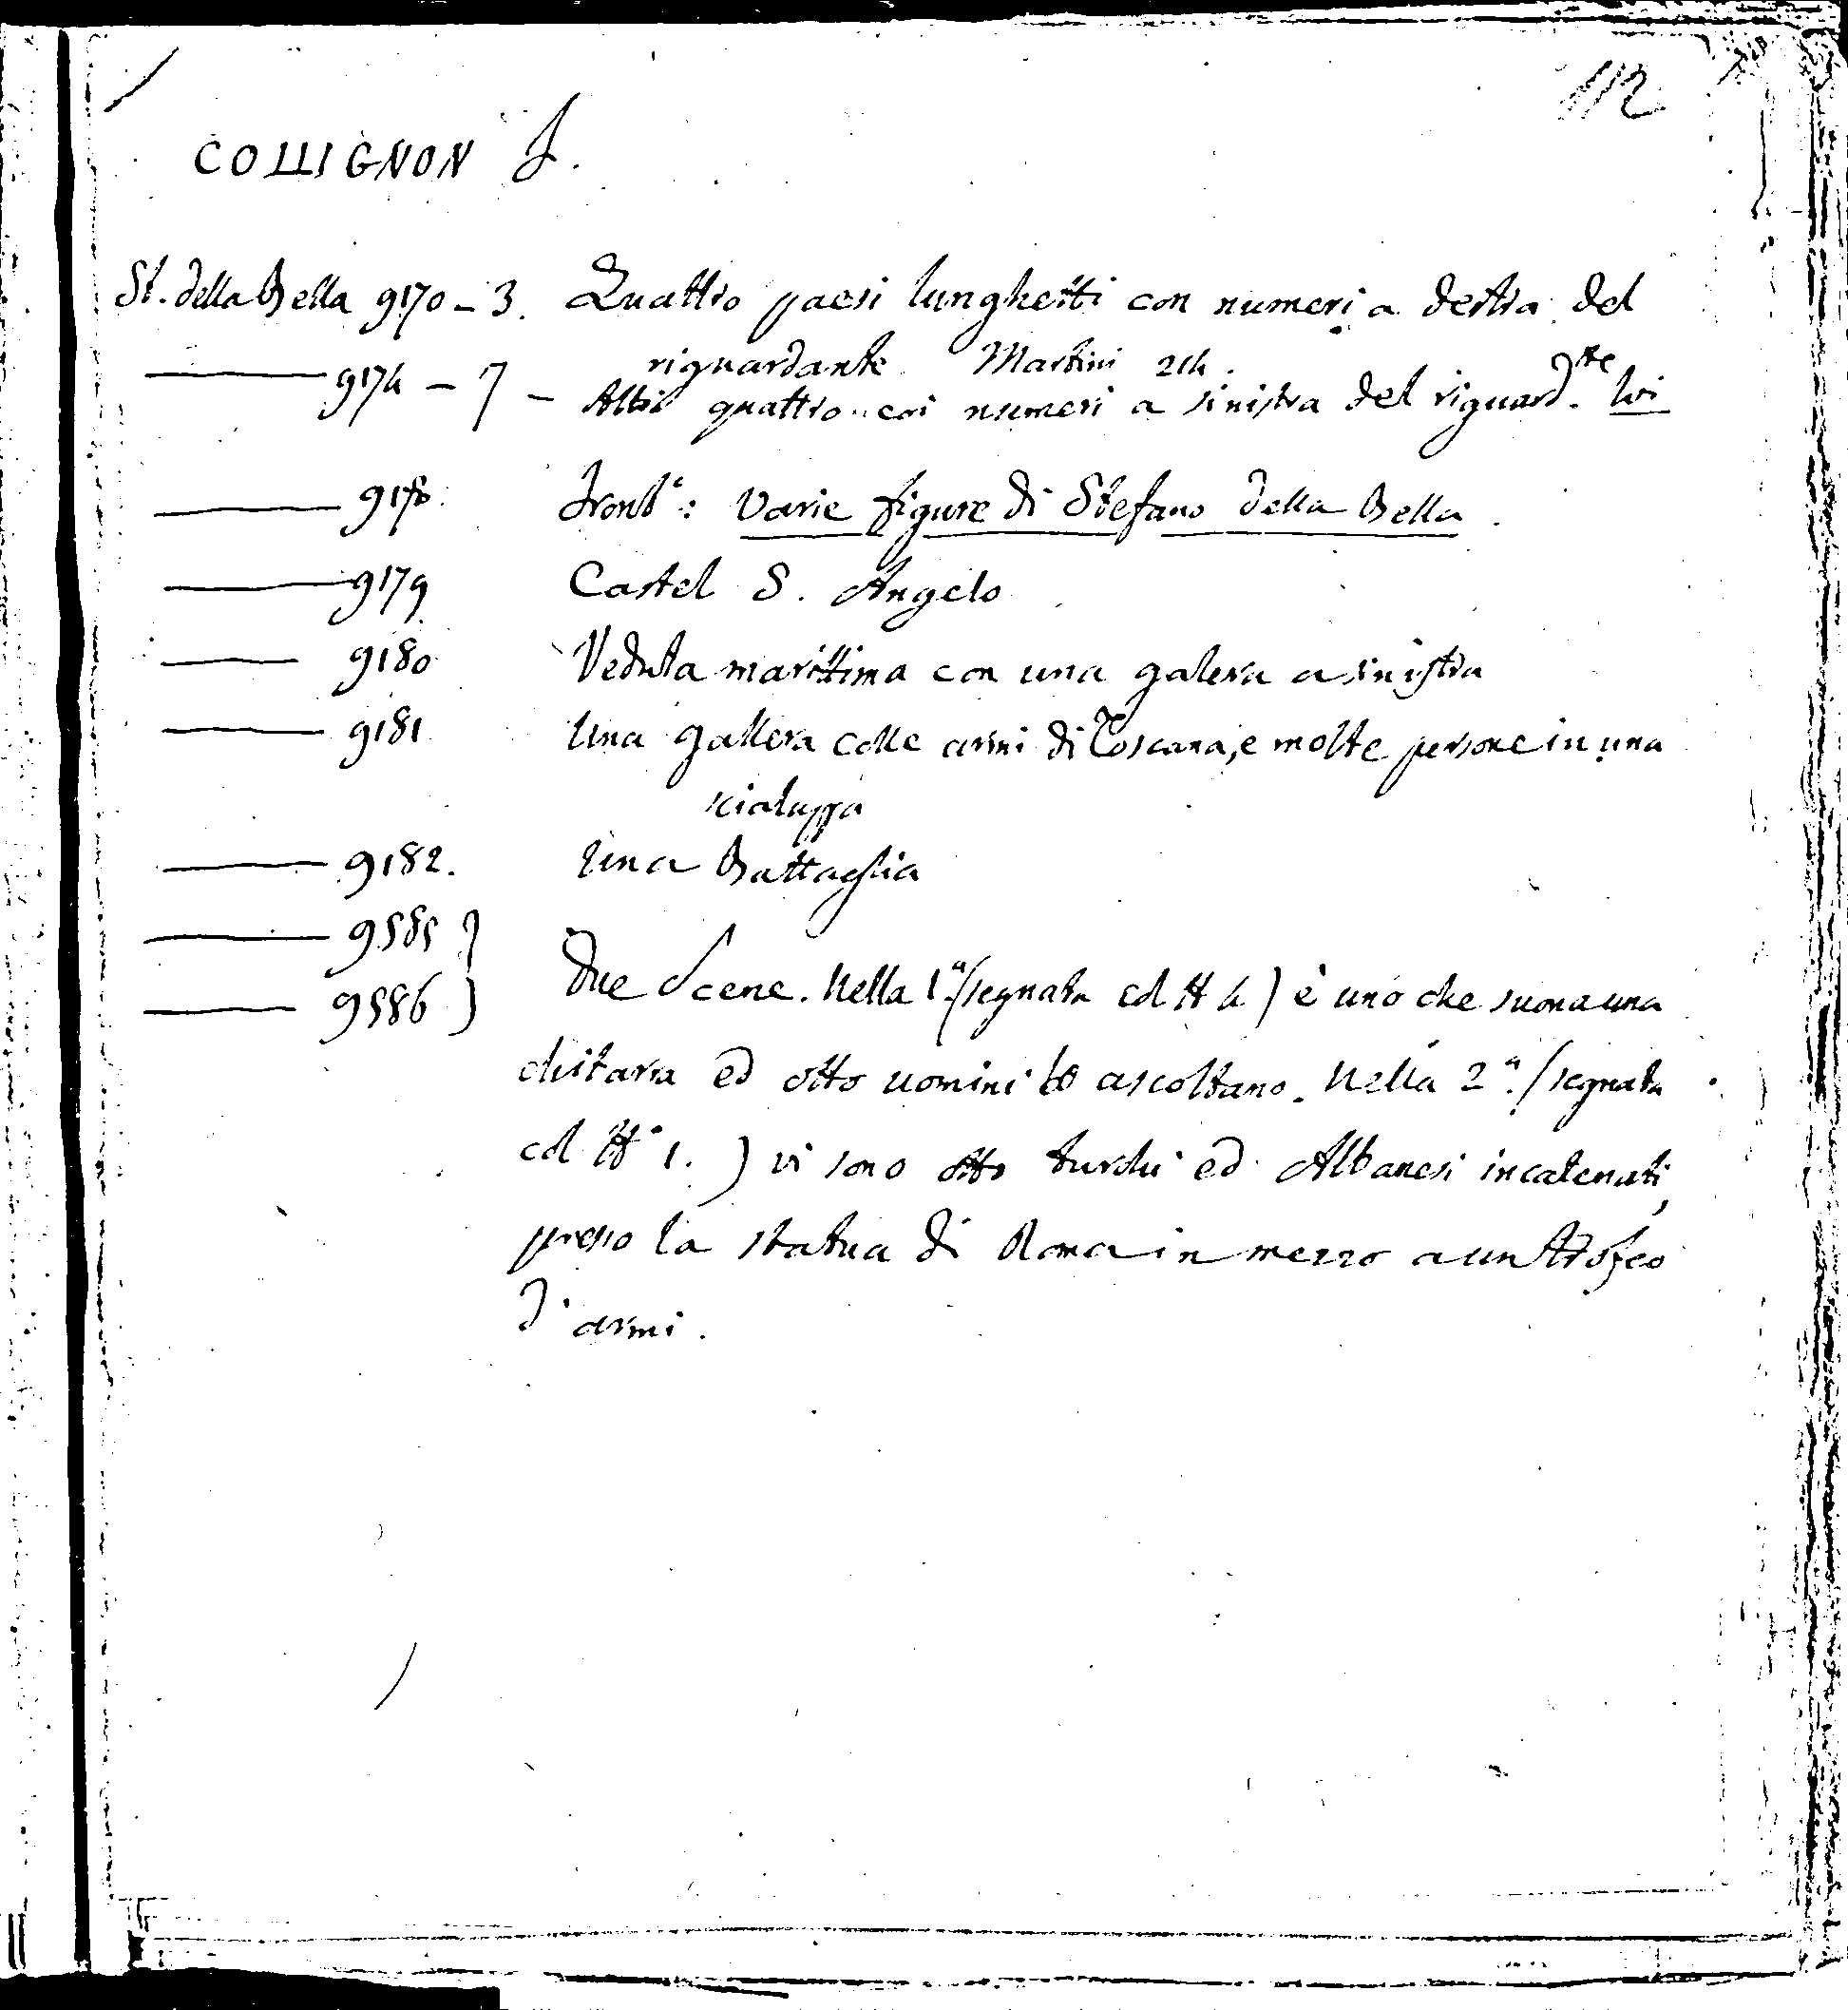 112
COLLIGNON F.
St. della Bella 9170 - 3. Quattro paesi lunghetti con numeri a destra del
riguardante. Martini 214.
——— 9174 - 7 - Altri quattro coi numeri a sinistra del riguard.te Ivi
——— 9178. Front.e: Varie figure di Stefano della Bella.
——— 9179 Castel S. Angelo
——— 9180 Veduta marittima con una galera a sinistra
——— 9181 Una gallera colle armi di Toscana, e molte persone in una
scialuppa
——— 9182. Una Battaglia
——— 9585 }
——— 9586 } Due Scene. Nella 1.a (segnata col N 4) è uno che suona una
chitarra ed otto uomini lo ascoltano. Nella 2.a (segnata
col N° 1.) vi sono otto turchi ed Albanesi incatenati,
presso la statua di Roma in mezzo a un trofeo
d'armi.